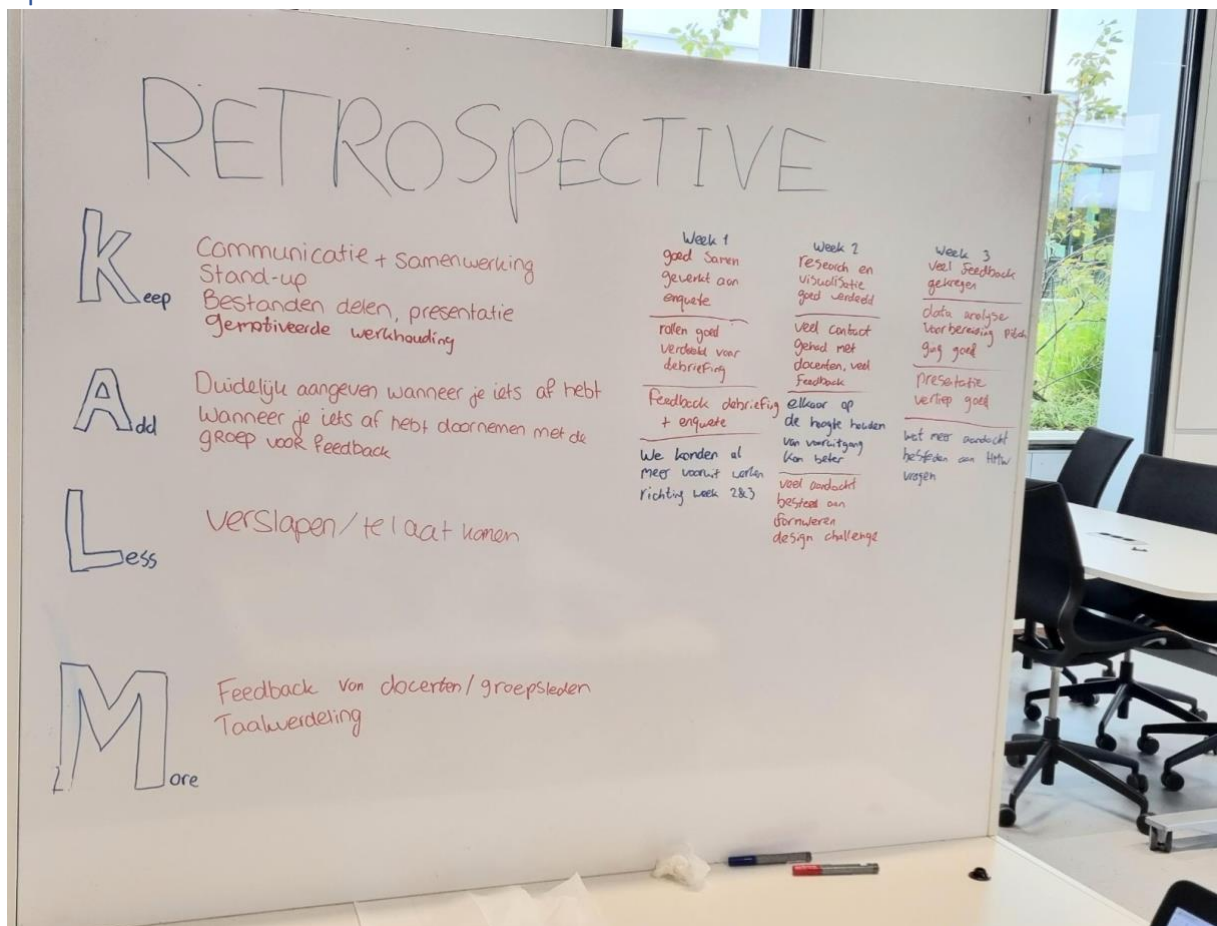 RETROSPECTIVE
Keep
Communicatie + samenwerking
Stand-up
Bestanden delen, presentatie
Gemotiveerde werkhouding
Add
Duidelijk aangeven wanneer je iets af hebt
Wanneer je iets af hebt doornemen met de
groep voor feedback
Less
verslapen/te laat komen
More
Feedback van docenten/groepsleden
Taakverdeling
Week 1
goed samen
gewerkt aan
enquete
rollen goed
verdeeld voor
debriefing
Feedback debriefing
+ enquete
We konden al
meer vooruit werken
richting week 2&3
Week 2
research en
visualisatie
goed verdeeld
veel contact
gehad met
docenten, veel
Feedback
elkaar op
de hoogte houden
van vooruitgang
kon beter
veel aandacht
besteed aan
formuleren
design challenge
Week 3
veel feedback
gekregen
data analyse
voorbereiding pitch
ging goed
presentatie
verliep goed
wat meer aandacht
besteden aan HMW
vragen